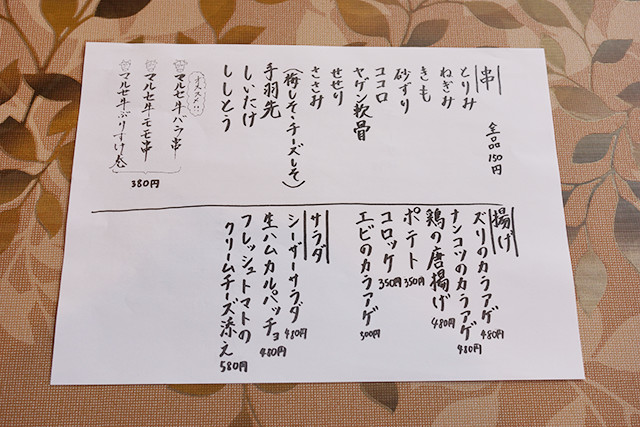 串
全品150円
とりみ
ねぎみ
きも
砂ずり
ココロ
ヤゲン軟骨
せせり
ささみ
(梅しそ・チーズしそ)
手羽先
しいたけ
ししとう
オススメ!!
マルセ牛バラ串
マルセ牛モモ串
マルセ牛ぶりすけ巻
380円
揚げ
ズリのカラアゲ 480円
ナンコツのカラアゲ 480円
鶏の唐揚げ 480円
ポテト 350円
コロッケ 350円
エビのカラアゲ 500円
サラダ
シーザーサラダ 480円
生ハムカルパッチョ 480円
フレッシュトマトの
クリームチーズ添え 580円